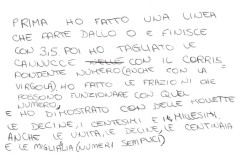 PRIMA HO FATTO UNA LINEA
CHE PARTE DALLO 0 E FINISCE
CON 3,5 POI HO TAGLIATO LE
CANNUCCE CON IL CORRIS
PONDENTE NUMERO (ANCHE CON LA
VIRGOLA) HO FATTO LE FRAZIONI CHE
POSSONO FUNZIONARE CON QUEL
NUMERO,
E HO DIMOSTRATO CON DELLE MOLLETTE
LE DECINE, I CENTESIMI E I MILLESIMI,
ANCHE LE UNITÀ, LE DECINE, LE CENTINAIA
E LE MIGLIAIA (NUMERI SEMPLICI)